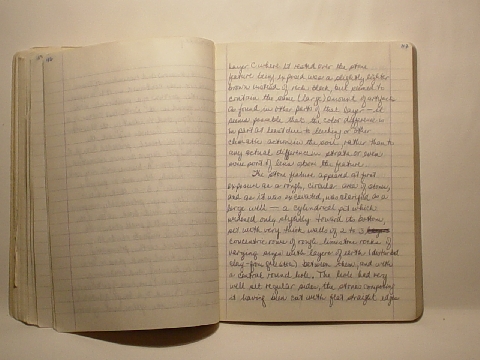 Layer C where it rested over the stone
feature being exposed was a slightly lighter
brown instead of rich black, but seemed to
contain the same (large) amount of artifacts
as found in other parts of that layer - it
seems possible that the color difference is
in part at least due to leaching or other
climatic action on the soil, rather than to
any actual difference in strata or even
more point of lens above the feature.
The stone feature appeared at first
exposure as a rough, circular area of stones,
and as it was excavated, was enlarged as a
large well - a cylindrical pit which
widened only slightly toward its bottom,
set with very thick walls of 2 to 3
concentric rows of rough limestone rocks of
varying sizes with layers of earth
clay- between them, and with
a central round hole. The hole had very
well set regular sides, the stones composing
it having been cut with flat straight edges